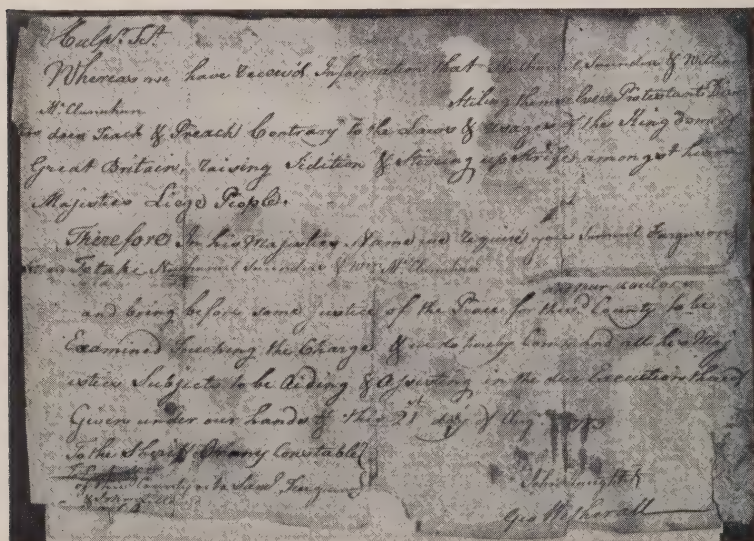 Culpr. Sct.
Whereas we have receivd Information that Nathaniel Saunders & William
McClannahan Stiling themselves Protestant Dissen
does Teach & Preach Contrary to the Laws & usages of the Kingdom of
Great Britain, raising Sedition & Stirring up Strife amongst his
Majesties Liege People.
Therefore In his Majesties Name we require you Samuel Ferguson
To take Nathaniel Saunders & Wm. McClannahan
and bring before some justice of the Peace for the County to be
Examined Touching the Charge & we do hereby Command all his Maj
esties Subjects to be Aiding & Assisting in the due Execution thereof
Given under our hands this 21st day of Aug
To the Sheriff Or any Constable
of County Saml. Ferguson
John Slaughter
Geo Wetherall